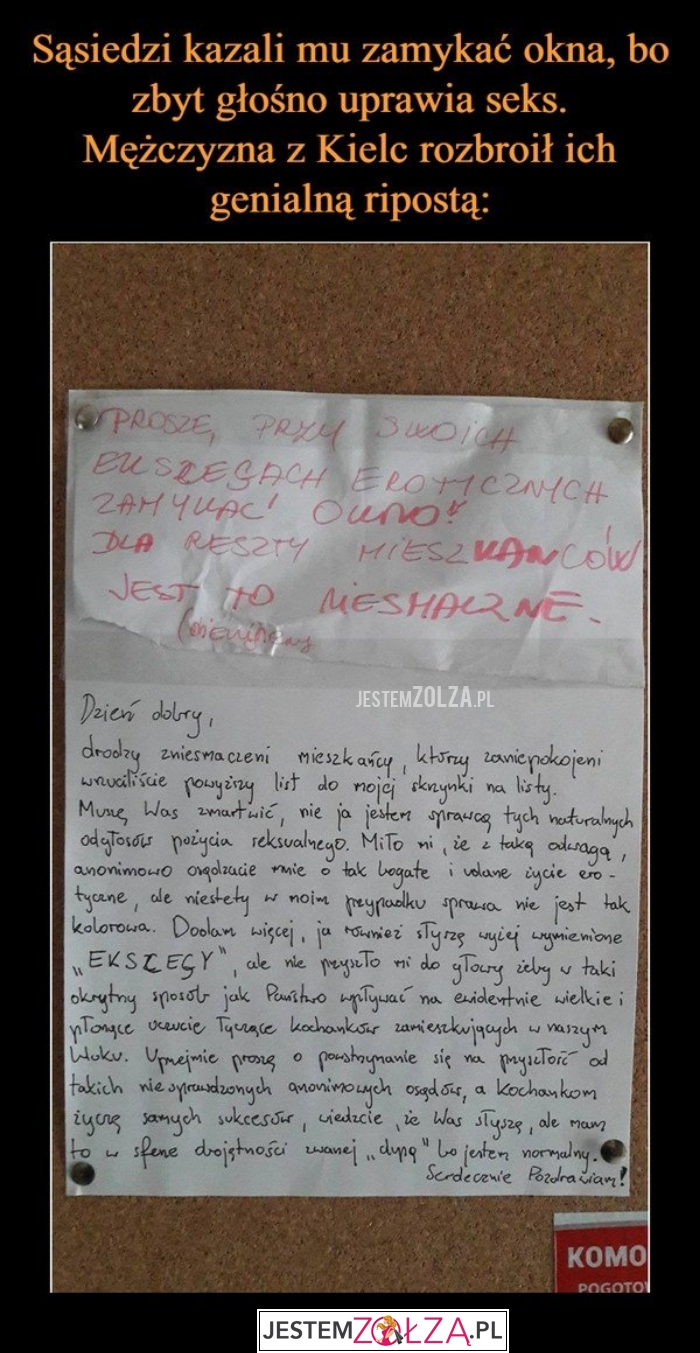 Sąsiedzi kazali mu zamykać okna, bo
zbyt głośno uprawia seks.
Mężczyzna z Kielc rozbroił ich
genialną ripostą:
PROSZĘ, PRZY SWOICH
EKSCESACH EROTYCZNYCH
ZAMYKAĆ OKNO!
DLA RESZTY MIESZKAŃCÓW
JEST TO NIESMACZNE.
JESTEMZOLZA.PL
Dzień dobry,
drodzy zniesmaczeni mieszkańcy, którzy zaniepokojeni
wrzuciliście powyższy list do mojej skrzynki na listy.
Muszę Was zmartwić, nie ja jestem sprawcą tych naturalnych
odgłosów pożycia seksualnego. Miło mi, że z taką odwagą,
anonimowo osądzacie mnie o tak bogate i udane życie ero-
tyczne, ale niestety w moim przypadku sprawa nie jest tak
kolorowa. Dodam więcej, ja również słyszę wyżej wymienione
„EKSCESY", ale nie przyszło mi do głowy żeby w taki
okrytny sposób jak Państwo wpływać na ewidentnie wielkie i
płonące uczucie łączące kochanków zamieszkujących w naszym
bloku. Uprzejmie proszę o powstrzymanie się na przyszłość od
takich niesprawdzonych anonimowych osądów, a kochankom
życzę samych sukcesów, wiedzcie, że Was słyszę, ale mam
to w sferze obojętności zwanej „dupą" bo jestem normalny.
Serdecznie Pozdrawiam!
KOMO
POGOTO
JESTEMZOŁZA.PL